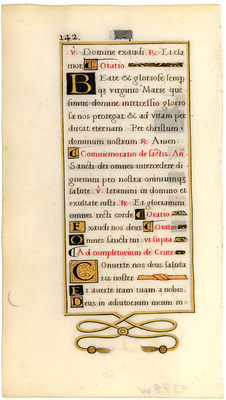 142.
℣. Domine exaudi. ℟. Et cla
mor. Oratio
Beate & gloriose semp
qȝ virginis Marie que
sumus domine intercessio glorio
sa nos protegat & ad vitam per
ducat eternam. Per christum
dominum nostrum ℟. Amen
Commemoratio de sctis. Añ
Sancti dei omnes intercedere di
gnemini pro nostra omniumqȝ
salute. ℣. Letamini in domino et
exultate iusti. ℟. Et gloriamini
omnes recti corde Oratio
Exaudi nos deus Oratio
Omnes sancti tui. vt supra
Ad completorium de Cruce
Conuerte nos deus saluta
ris noster
Et auerte iram tuam a nobis.
Deus in adiutorium meum in